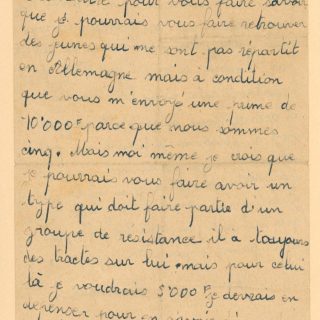 pour vous faire savoir
que je pourrais vous faire retrouver
des jeunes qui me sont pas répartit
en Allemagne mais à condition
que vous m'envoyé une prime de
10'000F parce que nous sommes
cinq. Mais moi même je crois que
je pourrais vous faire avoir un
type qui doit faire partie d'un
groupe de resistance il à toujours
des tractes sur lui. mais pour celui
là je voudrais 5'000F je devrais en
dépenser pour en